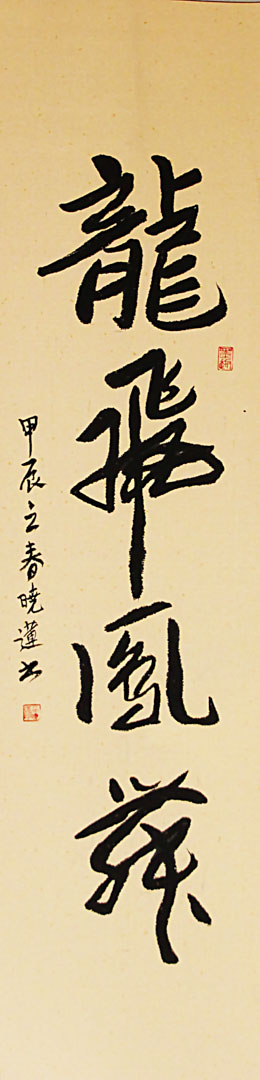 龍飛鳳舞
甲辰立春曉蓮书